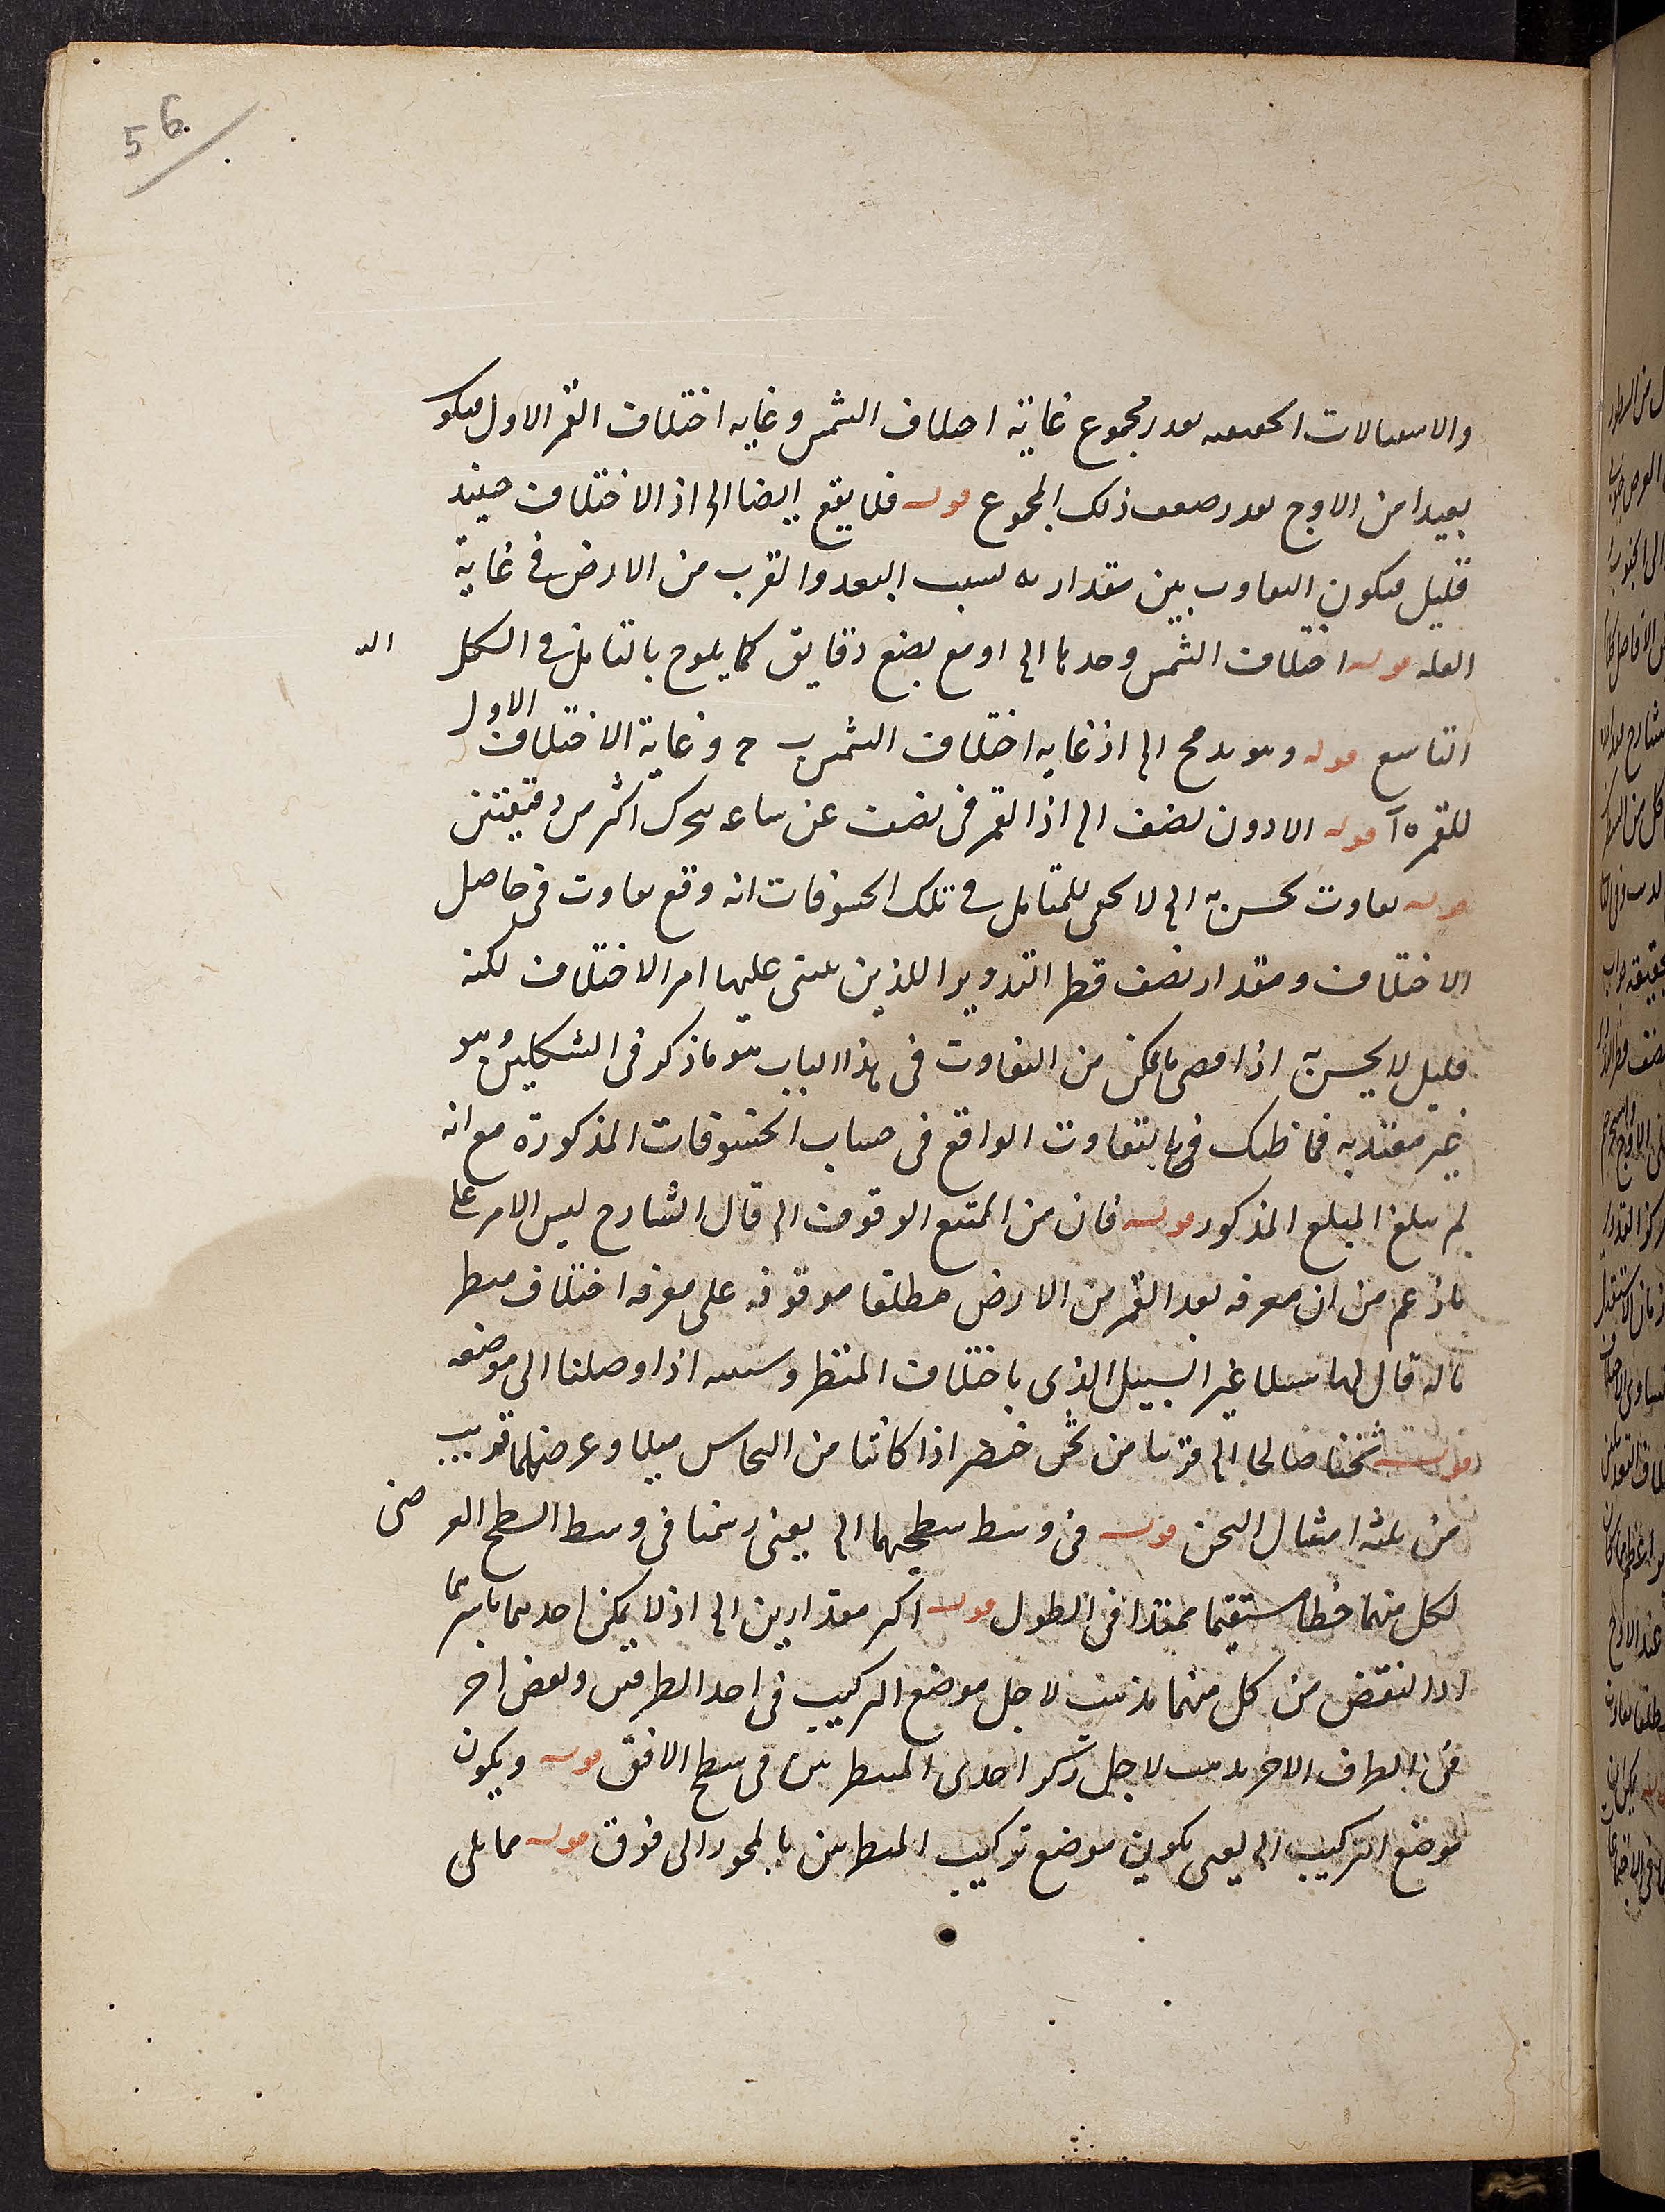 56
والاستقبالات الحقيقيه بعد مجموع غاية اختلاف الشمس وغايه اختلاف القمر الاول فيكو
بعيدا من الاوج بقدر ضعف ذلك المجموع قوله فلا يقع ايضا الى اذ الاختلاف حينئذ
قليل فيكون التفاوت بين مقداريه بسبب البعد والقرب من الارض في غاية
القله قوله اختلاف الشمس وحدها الى او مع بضع دقايق كما يلوح بالتامل في الشكل
التاسع قوله وهو الى اذ غايه اختلاف الشمس ب ح وغاية الاختلاف الاول
للقمر ه آ قوله الا دون نصف الى اذ القمر في نصف عن ساعه يتحرك اكثر من دقيقتين
قوله تفاوت يحسن به الى لا يخفى للمتامل في تلك الخسوفات انه وقع تفاوت في حاصل
الاختلاف ومقدار نصف قطر التدوير اللذين يبتنى عليهما امر الاختلاف لكنه
قليل لا يحسن به اذا ما يمكن من التفاوت في هذا الباب هو ما ذكر في الشكلين وهو
غير معتد به فما ظنك في بالتفاوت الواقع في حساب الخسوفات المذكورة مع انه
لم يبلغ المبلغ المذكور قوله فان من الممتنع الوقوف الى قال الشارح ليس الامر على
ما زعم من ان معرفه بعد القمر من الارض مطلقا موقوفه على معرفه اختلاف منظر
ما له قال لها سبيلا غير السبيل الذي باختلاف المنظر وسنبينه اذا وصلنا الى موضعه
قوله ثخنا صالحا الى قريبا من ثخن خنصر اذا كانتا من النحاس ميلا وعرضهما قريب
من ثلثه امثال الثخن قوله في وسط سطحيهما الى يعني رسمنا في وسط السطح العرضي
لكل منهما خطا مستقيما ممتدا في الطول قوله اكبر مقدارين الى اذ لا يمكن احدهما باسرها
اذ النقض من كل منهما لاجل موضع التركيب في احد الطرفين وبعض اخر
في الطرف الاخر لاجل ركز احدى المسطرتين في سطح الافق قوله ويكون
موضع التركيب الى يعني يكون موضع تركيب المسطرتين بالمحور الى فوق قوله مما يلي